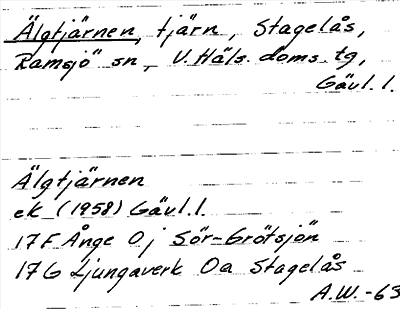 Älgtjärnen, tjärn, Stagelås,
Ramsjö sn, V. Häls. doms. tg,
Gävl. l.
Älgtjärnen
ek (1958) Gävl. l.
17F Ånge 0j Sör-Grötsjön
17G Ljungaverk 0a Stagelås
A.W. -63